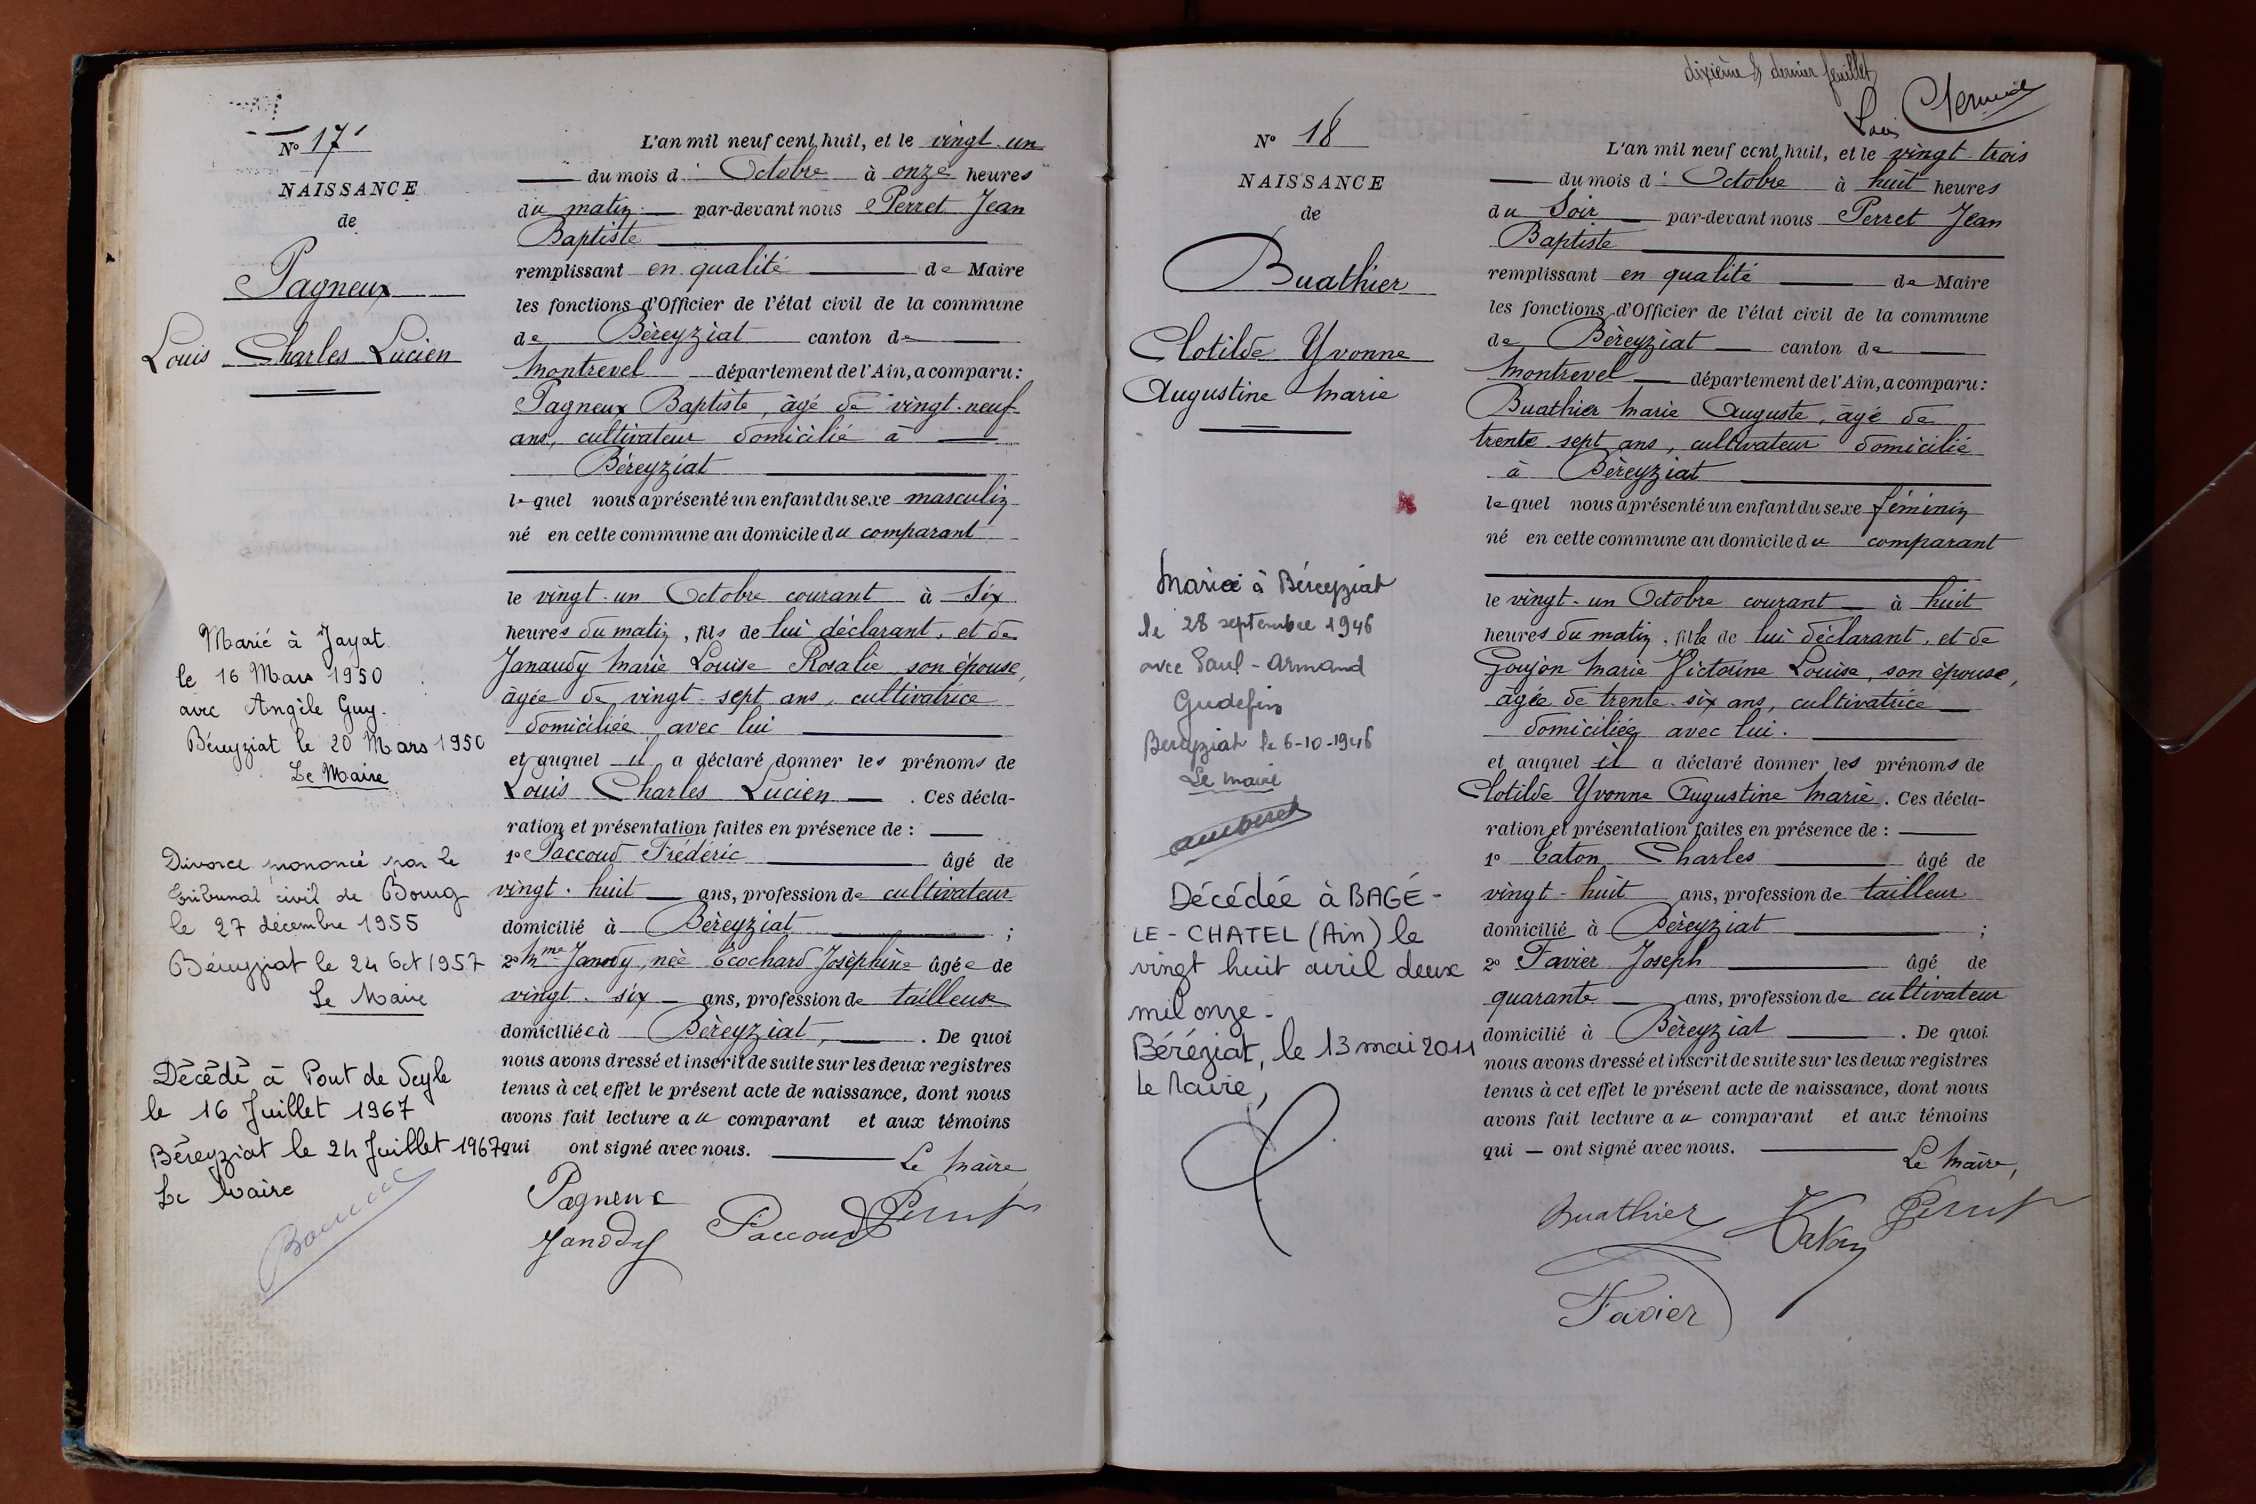 Nº 17
NAISSANCE
de
Pagneux
Louis Charles Lucien
Marié à Jayat
le 16 Mars 1950
avec Angèle Guy.
Béreyziat le 20 Mars 1950
Le Maire
Divorce prononcé par le
tribunal civil de Bourg
le 27 décembre 1955
Béreyziat le 24 Oct 1957
Le Maire
Décédé à Pont de Veyle
le 16 Juillet 1967
Béreyziat le 24 Juillet 1967
Le Maire
L'an mil neuf cent huit, et le vingt-un
du mois d' Octobre à onze heures
du matin par-devant nous Perret Jean
Baptiste
remplissant en qualité de Maire
les fonctions d'Officier de l'état civil de la commune
de Béreyziat canton de
Montrevel département de l'Ain, a comparu:
Pagneux Baptiste, âgé de vingt-neuf
ans, cultivateur domicilié à
Béreyziat
lequel nous a présenté un enfant du sexe masculin
né en cette commune au domicile du comparant
le vingt-un Octobre courant à six
heures du matin, fils de lui déclarant, et de
Janaudy Marie Louise Rosalie son épouse,
âgée de vingt-sept ans, cultivatrice
domiciliée avec lui
et auquel il a déclaré donner les prénoms de
Louis Charles Lucien. Ces décla-
ration et présentation faites en présence de :
1º Paccoud Frédéric âgé de
vingt-huit ans, profession de cultivateur
domicilié à Béreyziat ;
2º Mme Janody, née Ecochard Joséphine âgée de
vingt-six ans, profession de tailleuse
domiciliée à Béreyziat, . De quoi
nous avons dressé et inscrit de suite sur les deux registres
tenus à cet effet le présent acte de naissance, dont nous
avons fait lecture au comparant et aux témoins
qui ont signé avec nous.
Le Maire,
Pagneux
Janody Paccoud Perret
dixième & dernier feuillet
Nº 18
NAISSANCE
de
Buathier
Clotilde Yvonne
Augustine Marie
Mariée à Béreyziat
le 28 septembre 1946
avec Paul-Armand
Gudefin
Bereyziat le 6-10-1946
Le maire
Décédée à BAGÉ-
LE-CHATEL (Ain) le
vingt huit avril deux
mil onze.
Béréziat, le 13 mai 2011
Le Maire,
L'an mil neuf cent huit, et le vingt-trois
du mois d' Octobre à huit heures
du Soir par-devant nous Perret Jean
Baptiste
remplissant en qualité de Maire
les fonctions d'Officier de l'état civil de la commune
de Béreyziat canton de
Montrevel département de l'Ain, a comparu:
Buathier Marie Auguste, âgé de
trente-sept ans, cultivateur domicilié
à Béreyziat
lequel nous a présenté un enfant du sexe féminin
né en cette commune au domicile du comparant
le vingt-un Octobre courant à huit
heures du matin, fille de lui déclarant, et de
Goujon Marie Victorine Louise, son épouse,
âgée de trente-six ans, cultivatrice
domiciliée avec lui.
et auquel il a déclaré donner les prénoms de
Clotilde Yvonne Augustine Marie. Ces décla-
ration et présentation faites en présence de :
1º Caton Charles âgé de
vingt-huit ans, profession de tailleur
domicilié à Béreyziat ;
2º Favier Joseph âgé de
quarante ans, profession de cultivateur
domicilié à Béreyziat . De quoi
nous avons dressé et inscrit de suite sur les deux registres
tenus à cet effet le présent acte de naissance, dont nous
avons fait lecture au comparant et aux témoins
qui — ont signé avec nous.
Le Maire,
Buathier Caton Perret
Favier